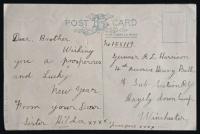 POST CARD
Dear Brother
Wishing
you a prosperous
and Lucky
New Year
From your Loving
Sister Hilda xxxx
Gunner A. L. Harrison
A Sub Section
Hazely Down Camp
Winchester